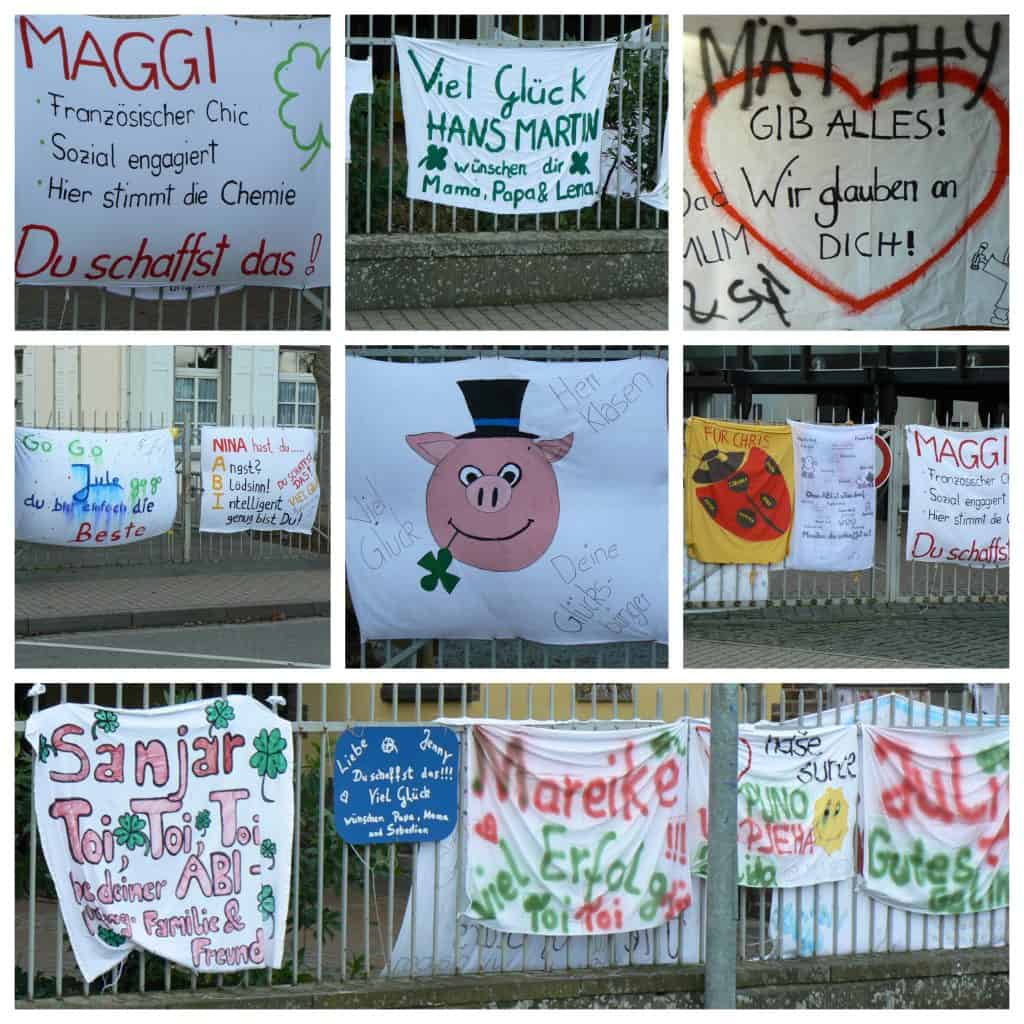 MAGGI
· Französischer Chic
· Sozial engagiert
· Hier stimmt die Chemie
Du schaffst das!
Viel Glück
HANS MARTIN
wünschen dir
Mama, Papa & Lena
MÄTTHY
GIB ALLES!
Wir glauben an
DICH!
Dad
MUM
& Syl
GO GO
Jule go go
du bist einfach die
Beste
NINA hast du.....
Angst?
Blödsinn!
Intelligent
genug bist Du!
DU SCHAFFST
DAS!
VIEL
Herr
Klasen
Viel
Glück
Deine
Glücks-
bringer
FÜR CHRIS
MAGGI
· Französischer Ch
· Sozial engagiert
· Hier stimmt die
Du schaffst
Sanjar
Toi, Toi, Toi
deiner ABI-
Familie &
Freund
Liebe Jenny
Du schaffst das!!!
Viel Glück
wünschen Papa, Mama
and Sebastian
Mareike
!!!
viel Erfolg
Toi Toi Toi
naše
sunce
PUNO
Juli
Gutes